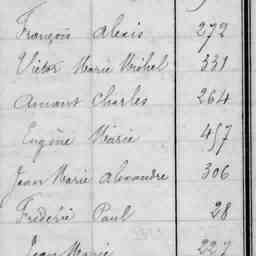 François Alexis 272
Victor Marie Michel 331
Amant Charles 264
Eugène Marie 457
Jean Marie Alexandre 306
Frédéric Paul 28
Jean Marie 227